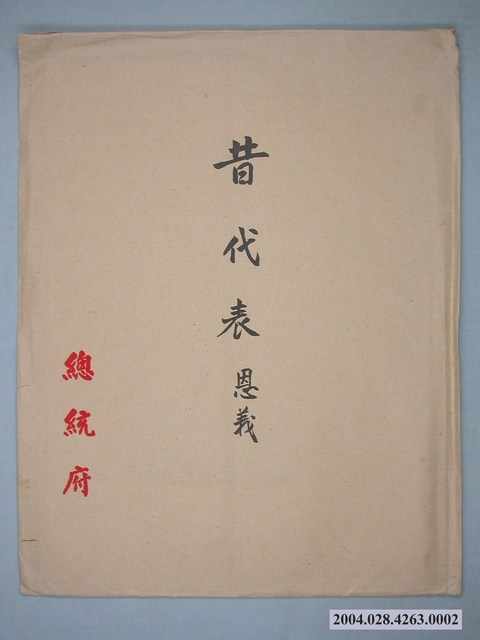 昔代表恩義
總統府
2004.028.4263.0002